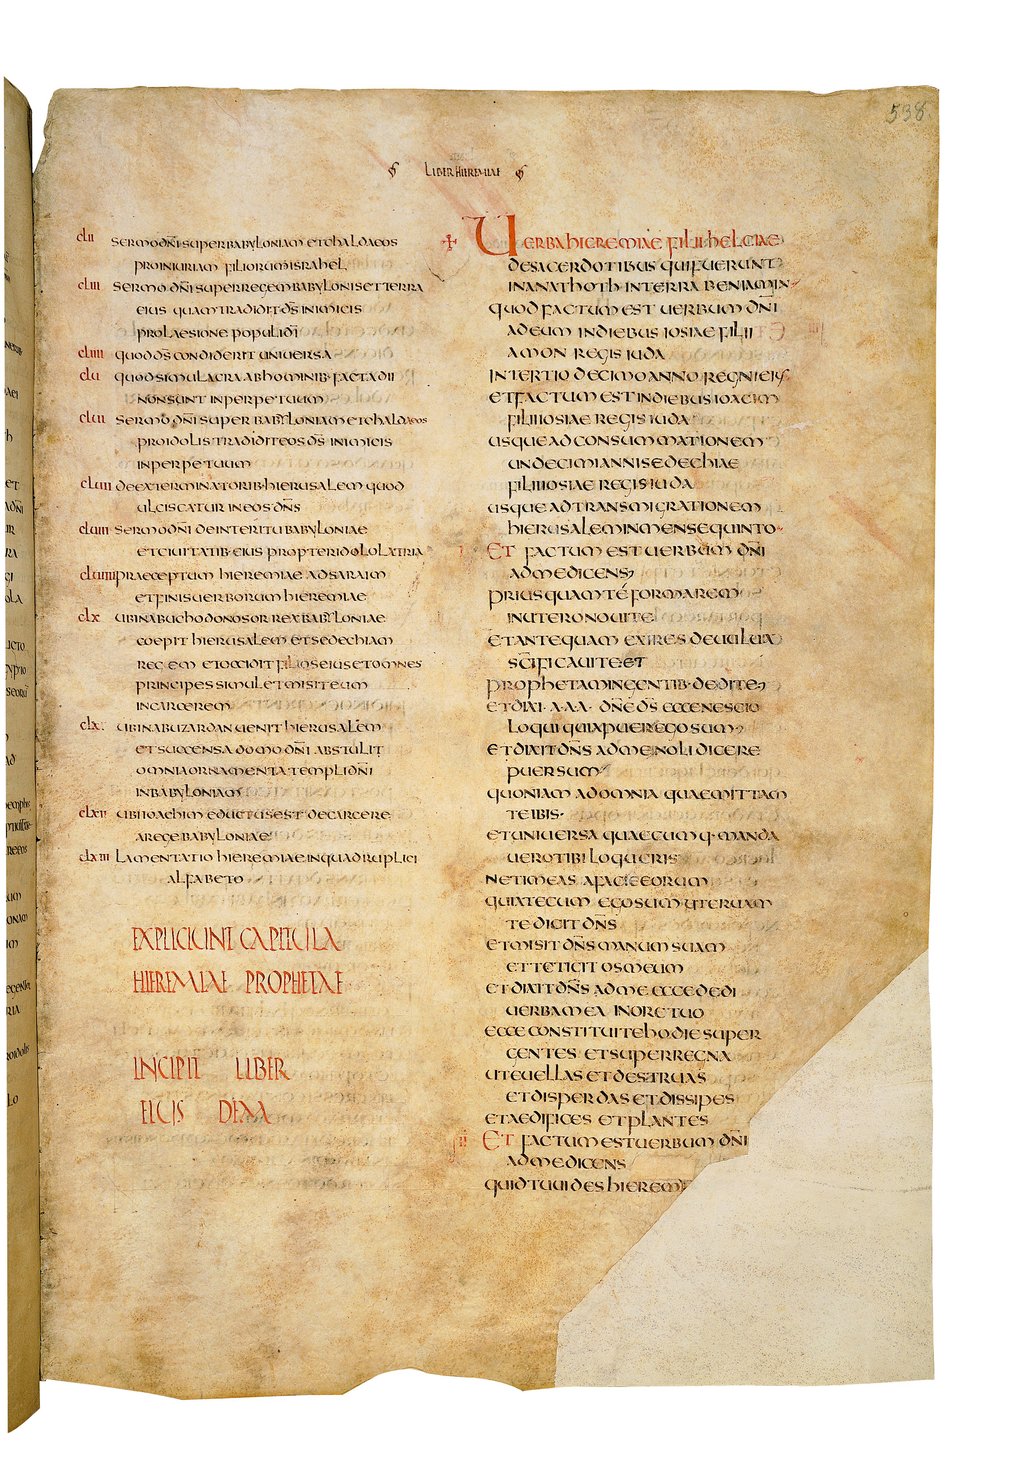 538
LIBER HIEREMIAE
CLII SERMO DN̄I SUPER BABYLONIAM ET CHALDAEOS
PRO INIURIAM FILIORUM ISRAHEL
CLIII SERMO DN̄I SUPER REGEM BABYLONIS ET TERRA
EIUS QUAM TRADIDIT DS̄ INIMICIS
PRO LAESIONE POPULI DĪ
CLIIII QUOD DS̄ CONDIDERIT UNIUERSA
CLU QUOD SIMULACRA AB HOMINIB· FACTA DII
NON SUNT IN PERPETUUM
CLUI SERMO DN̄I SUPER BABYLONIAM ET CHALDAEOS
PRO IDOLIS TRADIDIT EOS DS̄ INIMICIS
IN PERPETUUM
CLUII DE EXTERMINATORIB· HIERUSALEM QUOD
ULCISCATUR IN EOS DN̄S
CLUIII SERMO DN̄I DE INTERITU BABYLONIAE
ET CIUITATIB· EIUS PROPTER IDOLOLATRIA
CLUIIII PRAECEPTUM HIEREMIAE AD SARAIM
ET FINIS UERBORUM HIEREMIAE
CLX UBI NABUCHODONOSOR REX BABYLONIAE
COEPIT HIERUSALEM ET SEDECHIAM
REGEM ET OCCIDIT FILIOS EIUS ET OMNES
PRINCIPES SIMUL ET MISIT EUM
IN CARCEREM
CLXI UBI NABUZARDAN UENIT HIERUSALEM
ET SUCCENSA DOMO DN̄I ABSTULIT
OMNIA ORNAMENTA TEMPLI DN̄I
IN BABYLONIAM
CLXII UBI IOACHIM EDUCTUS EST DE CARCERE
A REGE BABYLONIAE
CLXIII LAMENTATIO HIEREMIAE IN QUADRUPLICI
ALFABETO
EXPLICIUNT CAPITULA
HIEREMIAE PROPHETAE
INCIPIT LIBER
EIUS DEM
UERBA HIEREMIAE FILII HELCIAE
DE SACERDOTIBUS QUI FUERUNT
IN ANATHOTH IN TERRA BENIAMIN
QUOD FACTUM EST UERBUM DN̄I
AD EUM IN DIEBUS IOSIAE FILII
AMON REGIS IUDA
IN TERTIO DECIMO ANNO REGNI EIUS
ET FACTUM EST IN DIEBUS IOACIM
FILII IOSIAE REGIS IUDA
USQUE AD CONSUMMATIONEM
UNDECIMI ANNI SEDECHIAE
FILII IOSIAE REGIS IUDA
USQUE AD TRANSMIGRATIONEM
HIERUSALEM IN MENSE QUINTO
I ET FACTUM EST UERBUM DN̄I
AD ME DICENS
PRIUSQUAM TE FORMAREM
IN UTERO NOUI TE
ET ANTEQUAM EXIRES DE UULUA
SC̄IFICAUI TE ET
PROPHETAM IN GENTIB· DEDI TE
ET DIXI · A · A · A · DN̄E DS̄ ECCE NESCIO
LOQUI QUIA PUER EGO SUM
ET DIXIT DN̄S AD ME NOLI DICERE
PUER SUM
QUONIAM AD OMNIA QUAE MITTAM
TE IBIS·
ET UNIUERSA QUAECUMQ· MANDA
UERO TIBI LOQUERIS
NE TIMEAS A FACIE EORUM
QUIA TECUM EGO SUM UT ERUAM
TE DICIT DN̄S
ET MISIT DN̄S MANUM SUAM
ET TETIGIT OS MEUM
ET DIXIT DN̄S AD ME ECCE DEDI
UERBA MEA IN ORE TUO
ECCE CONSTITUI TE HODIE SUPER
GENTES ET SUPER REGNA
UT EUELLAS ET DESTRUAS
ET DISPERDAS ET DISSIPES
ET AEDIFICES ET PLANTES
II ET FACTUM EST UERBUM DN̄I
AD ME DICENS
QUID TU UIDES HIEREM